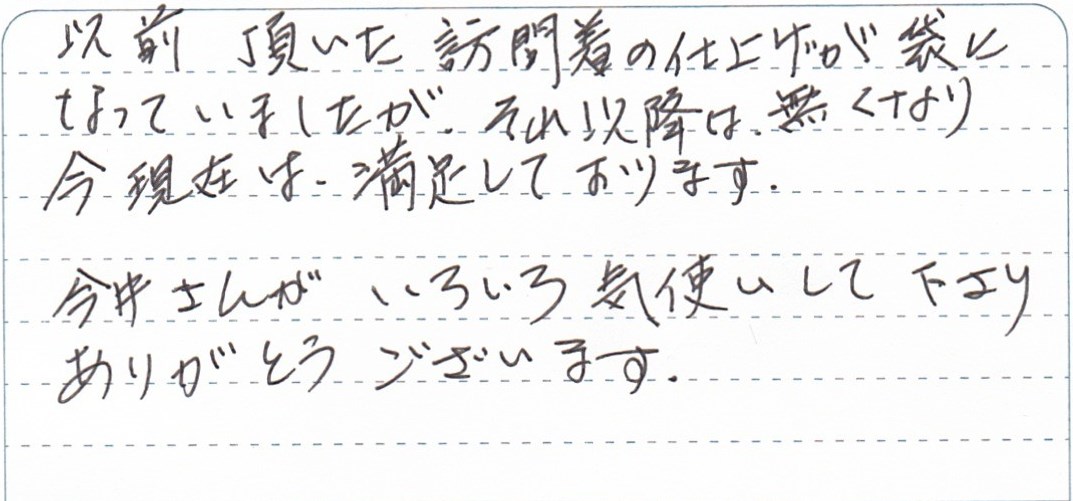 以前 頂いた 訪問着の仕上げが 袋に
なっていましたが、それ以降は、無くなり
今現在は、満足して おります.
今井さんが いろいろ 気使いして 下さり
ありがとう ございます.